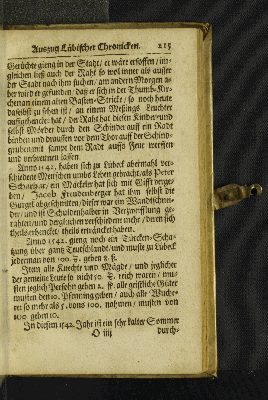 Auszug Lübischer Chronicken. 215
Gerüchte gieng in der Stadt / er wäre ersoffen / im-
gleichen ließ auch der Raht so wol inner als ausser
der Stadt nach ihm suchen / am andern Morgen a-
ber wird er gefunden / daß er sich in der Thumb-Kir-
chen an einem alten Fasten-Stricke / so noch heute
daselbst zu sehen ist / an einem Messings Leuchter
auffgehencket hat / der Raht hat diesen Kinder- und
selbst Mörder durch den Schinder auff ein Rad
binden und draussen vor dem Thor auff der Schind-
gruben mit sampt dem Radt auffs Feur werffen
und verbrennen lassen.
Anno 1542. haben sich zu Lübeck abermahl ver-
schiedene Menschen umbs Leben gebracht / als Peter
Jacob Freudenberger hat ihm selbst die
Gurgel abgeschnitten / dieser war ein Wandtschnei-
der / und ist Schuldenhalber in Verzweifflung ge-
rahten / und dergleichen verschiedene mehr / deren sich
theils erhencket / theils erträncket haben.
Anno 1542. gieng noch ein Türcken-Scha-
tzung über gantz Teutschlandt / und muste zu Lübeck
jederman von 100. geben 8. ß.
Item alle Knechte und Mägde / und jeglicher
der gemeine Leute so nicht 50. reich waren / mu-
sten jeglich Persohn geben 2. ß. alle geistliche Güter
musten den 10. Pfenning geben / auch alle Wuche-
rer so mehr als 5. vons 100. nahmen / musten von
100 geben 10.
In diesem 1542. Jahr ist ein sehr kalter Sommer
O iiij durch-